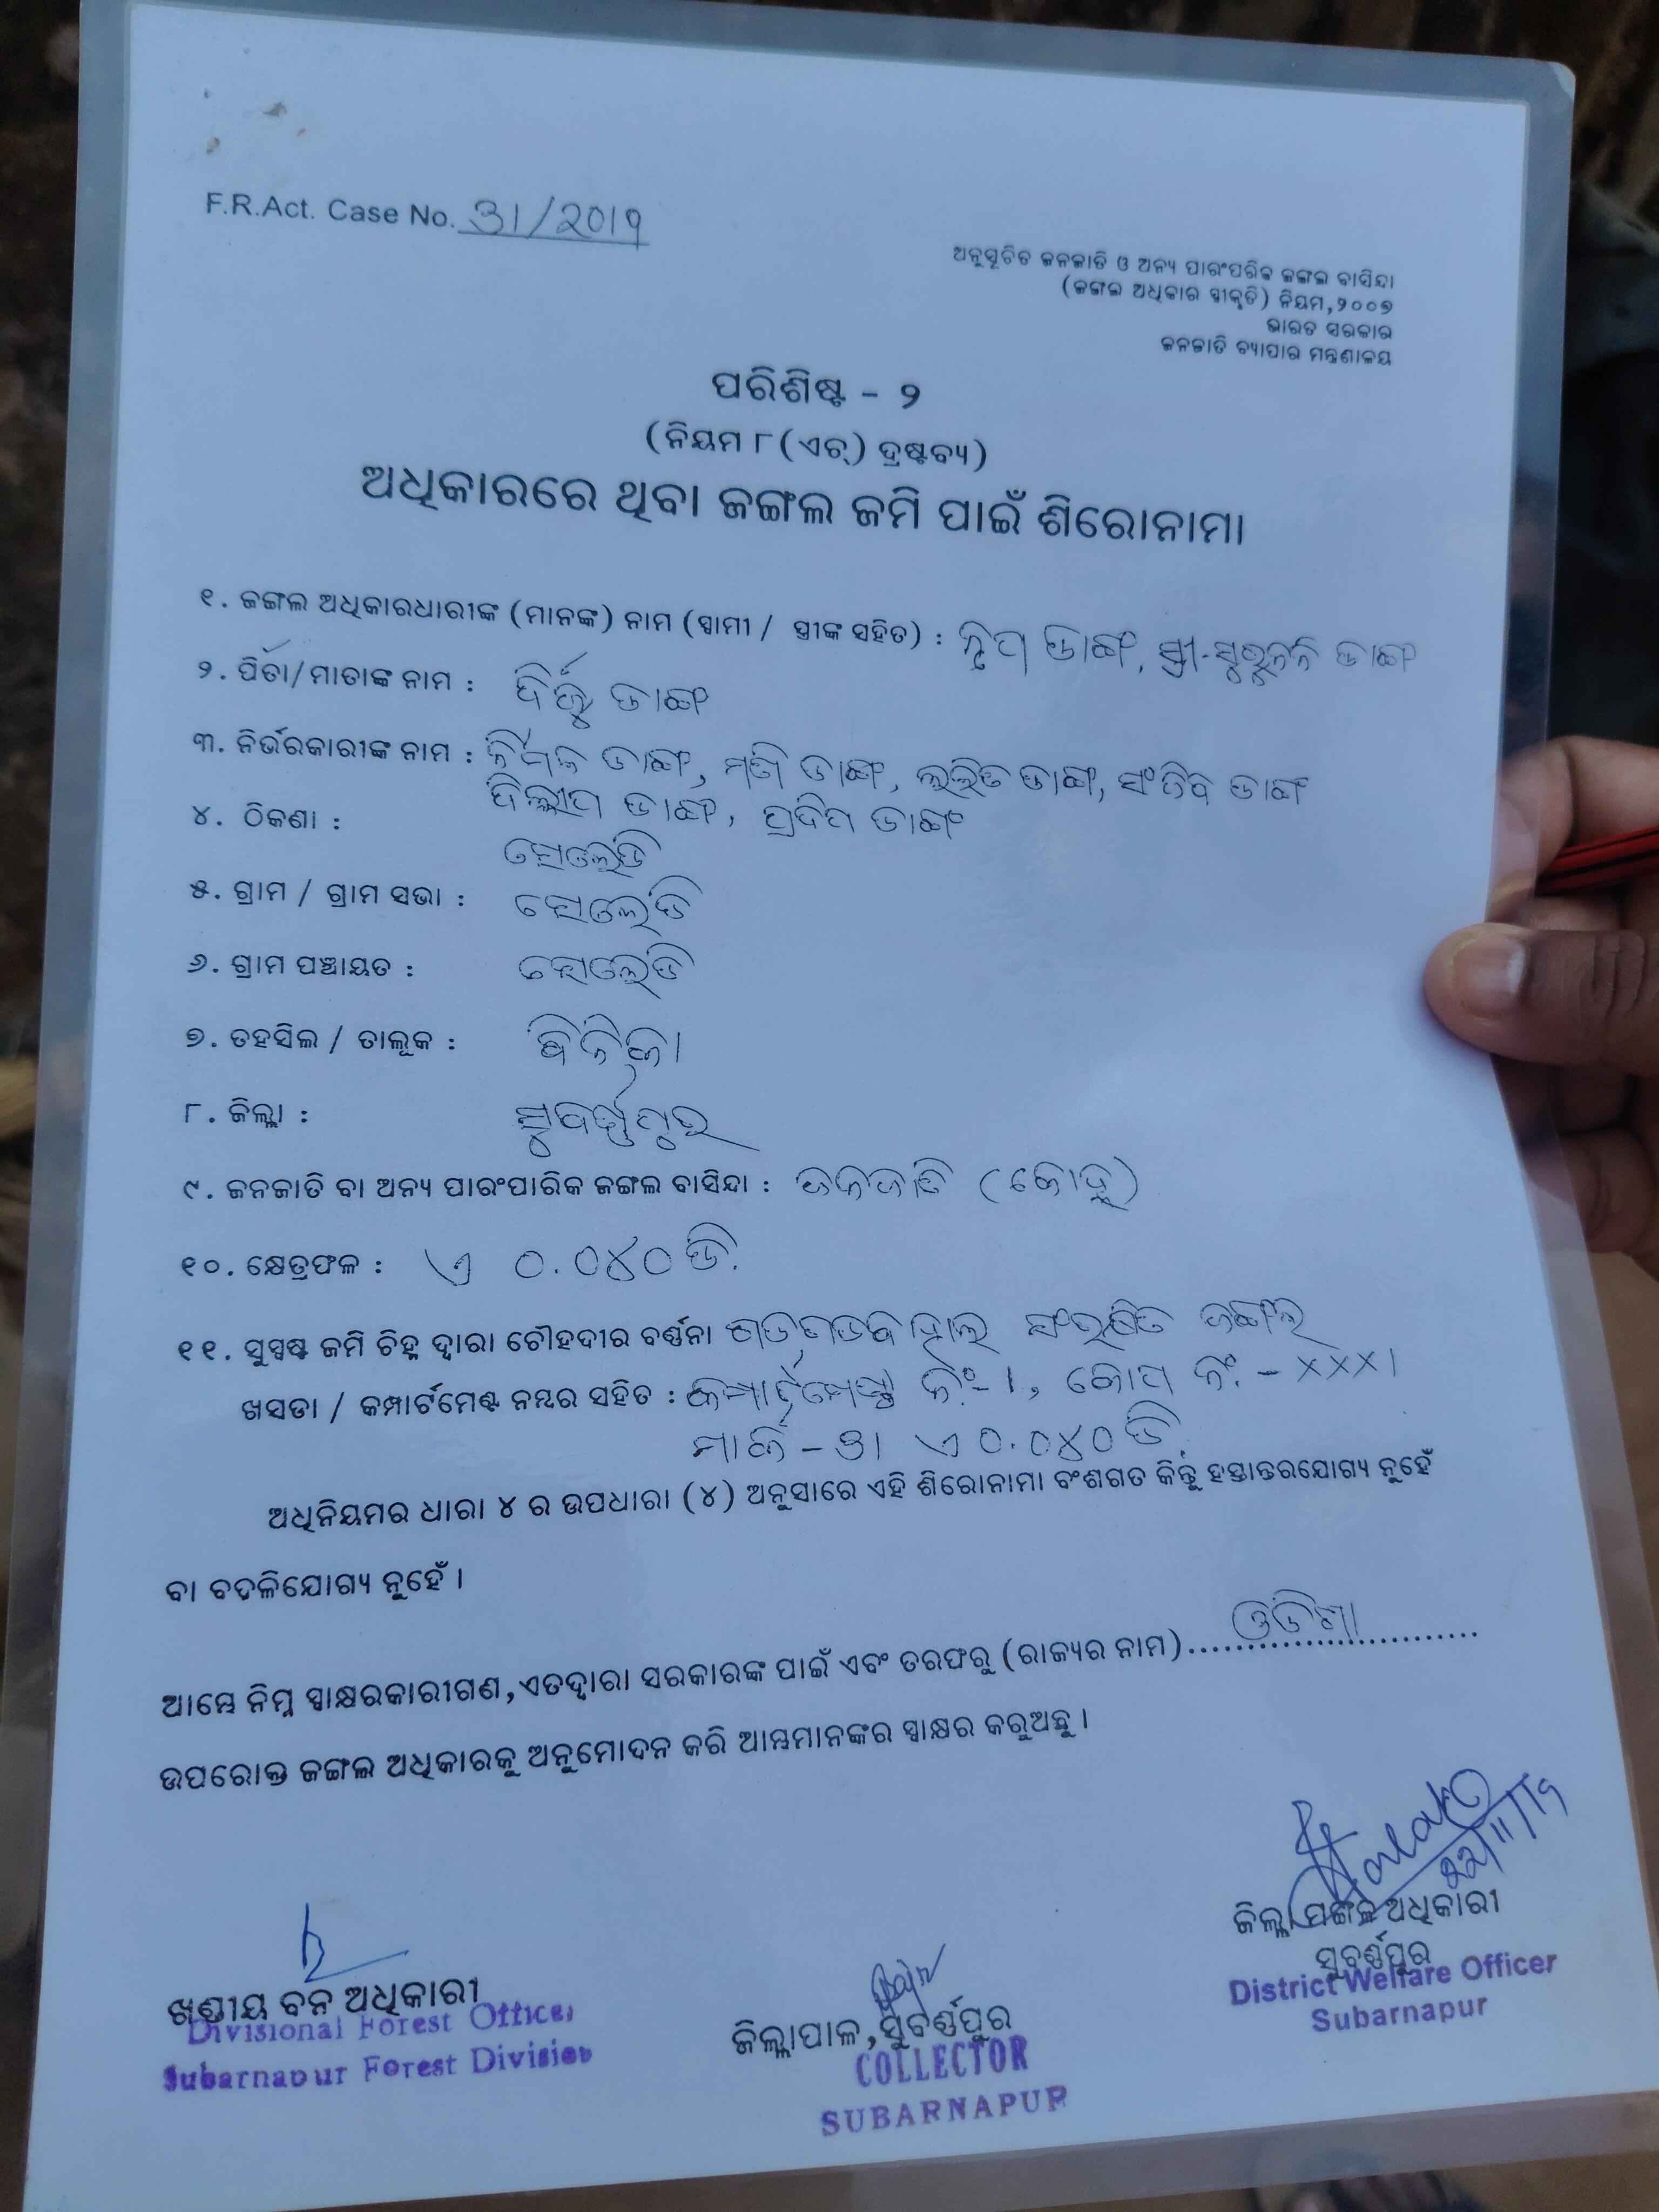 F.R.Act. Case No. 31/2019
ଅନୁସୂଚିତ ଜନଜାତି ଓ ଅନ୍ୟ ପାରଂପରିକ ଜଙ୍ଗଲ ବାସିନ୍ଦା
(ଜଙ୍ଗଲ ଅଧିକାର ସ୍ୱୀକୃତି) ନିୟମ,୨୦୦୭
ଭାରତ ସରକାର
ଜନଜାତି ବ୍ୟାପାର ମନ୍ତ୍ରଣାଳୟ
ପରିଶିଷ୍ଟ - ୨
(ନିୟମ ୮ (ଏଚ୍) ଦ୍ରଷ୍ଟବ୍ୟ)
ଅଧିକାରରେ ଥିବା ଜଙ୍ଗଲ ଜମି ପାଇଁ ଶିରୋନାମା
୧. ଜଙ୍ଗଲ ଅଧିକାରଧାରୀଙ୍କ (ମାନଙ୍କ) ନାମ (ସ୍ୱାମୀ / ସ୍ତ୍ରୀଙ୍କ ସହିତ) : ନୃପ ଡାଙ୍ଗ, ସ୍ତ୍ରୀ- ଡାଙ୍ଗ
୨. ପିତା/ମାତାଙ୍କ ନାମ : ଡାଙ୍ଗ
୩. ନିର୍ଭରକାରୀଙ୍କ ନାମ : ଡାଙ୍ଗ, ଡାଙ୍ଗ, ଲଲିତ ଡାଙ୍ଗ, ଡାଙ୍ଗ
ଦିଲ୍ଲୀପ ଡାଙ୍ଗ, ପ୍ରଦିପ ଡାଙ୍ଗ
୪. ଠିକଣା :
ସେଲେଡି
୫. ଗ୍ରାମ / ଗ୍ରାମ ସଭା : ସେଲେଡି
୬. ଗ୍ରାମ ପଞ୍ଚାୟତ : ସେଲେଡି
୭. ତହସିଲ / ତାଲୂକ : ବିନିକା
୮. ଜିଲ୍ଲା : ସୁବର୍ଣ୍ଣପୁର
୯. ଜନଜାତି ବା ଅନ୍ୟ ପାରଂପାରିକ ଜଙ୍ଗଲ ବାସିନ୍ଦା : ଜନଜାତି (କୋହ୍ଲ)
୧୦. କ୍ଷେତ୍ରଫଳ : ଏ ୦.୦୪୦ ଡି.
୧୧. ସୁସ୍ପଷ୍ଟ ଜମି ଚିହ୍ନ ଦ୍ୱାରା ଚୌହଦୀର ବର୍ଣ୍ଣନା ସଂରକ୍ଷିତ ଜଙ୍ଗଲ
ଖସଡା / କମ୍ପାର୍ଟମେଣ୍ଟ ନମ୍ବର ସହିତ : କମ୍ପାର୍ଟମେଣ୍ଟ ନଂ-1, କୋପ ନଂ. - XXX।
ଏ ୦.୦୪୦ ଡି.
ଅଧିନିୟମର ଧାରା ୪ ର ଉପଧାରା (୪) ଅନୁସାରେ ଏହି ଶିରୋନାମା ବଂଶଗତ କିନ୍ତୁ ହସ୍ତାନ୍ତରଯୋଗ୍ୟ ନୁହେଁ
ବା ବଦଳିଯୋଗ୍ୟ ନୁହେଁ ।
ଆମ୍ଭେ ନିମ୍ନ ସ୍ୱାକ୍ଷରକାରୀଗଣ,ଏତଦ୍ୱାରା ସରକାରଙ୍କ ପାଇଁ ଏବଂ ତରଫରୁ (ରାଜ୍ୟର ନାମ) ଓଡିଶା
ଉପରୋକ୍ତ ଜଙ୍ଗଲ ଅଧିକାରକୁ ଅନୁମୋଦନ କରି ଆମ୍ଭମାନଙ୍କର ସ୍ୱାକ୍ଷର କରୁଅଛୁ ।
22/11/19
ଜିଲ୍ଲା ମଙ୍ଗଳ ଅଧିକାରୀ
ସୁବର୍ଣ୍ଣପୁର
District Welfare Officer
Subarnapur
ଖଣ୍ଡୀୟ ବନ ଅଧିକାରୀ
Divisional Forest Officer
Subarnapur Forest Division
ଜିଲ୍ଲାପାଳ,ସୁବର୍ଣ୍ଣପୁର
COLLECTOR
SUBARNAPUR